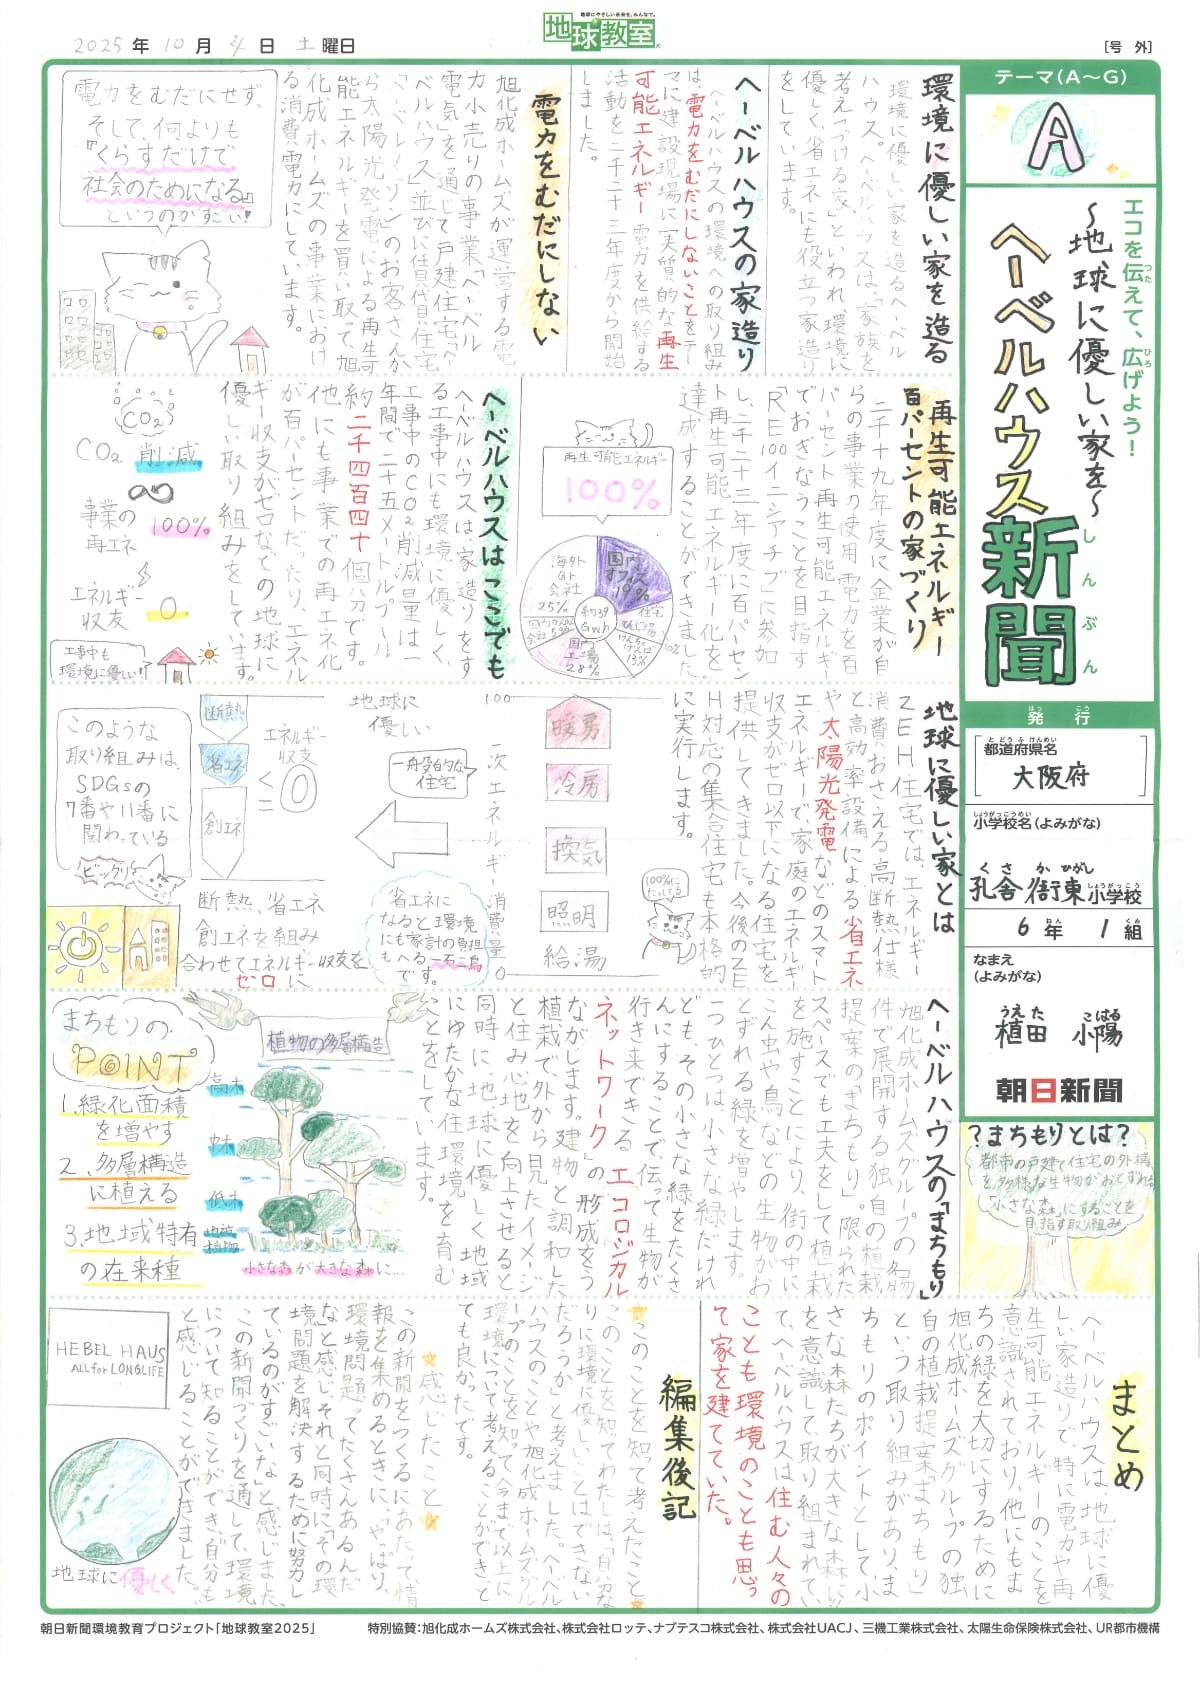 2025年10月4日土曜日
地球にやさしい未来を、みんなで。
地球教室
[号外]
テーマ(A〜G)
A
エコを伝えて、広げよう!
つた
ひろ
〜地球に優しい家を〜
ヘーベルハウス
新聞
しんぶん
発行
はっこう
都道府県名
とどうふけんめい
大阪府
小学校名(よみがな)
しょうがっこうめい
くさかひがし
孔舎衙東小学校
しょうがっこう
6年1組
ねん
くみ
なまえ
(よみがな)
うえだ こはる
植田 小陽
朝日新聞
環境に優しい家を造る
環境に優しい家を造るヘーベル
ハウス。ヘーベルハウスは、「家族を
考えつづける家」といわれ、環境に
優しく、省エネにも役立つ家造り
をしています。
ヘーベルハウスの家造り
ヘーベルハウスの環境への取り組み
は電力をむだにしないことをテー
マに建設現場に実質的な再生
可能エネルギー電力を供給する
活動を二千二十三年度から開始
しました。
電力をむだにしない
旭化成ホームズが運営する電
力小売りの事業「ヘーベル
電気」を通じて戸建住宅「ヘー
ベルハウス」並びに賃貸住宅
「ヘーベルメゾン」のお客さんか
ら太陽光発電による再生可
能エネルギーを買い取って、旭
化成ホームズの事業におけ
る消費電力にしています。
電力をむだにせず、
そして、何よりも
『くらすだけで
社会のためになる』
というのがすごい!
再生可能エネルギー
百パーセントの家づくり
二千十九年度に企業が自
らの事業の使用電力を百
パーセント再生可能エネルギー
でおぎなうことを目指す
「RE100イニシアチブ」に参加
し、二千二十三年度に百パーセン
ト再生可能エネルギー化を
達成することができました。
再生可能エネルギー
100%
国内オフィス
19%
住宅
てんじ場
10%
けんちく
けんば
13%
国内
工場
28%
国内かんれん
会社5%
海外
Gr
会社
25%
約39
GWh
ヘーベルハウスはここでも
ヘーベルハウスは、家造りをす
る工事中にも環境に優しく、
工事中のCO2削減量は一
年間で二十五メートルプール
約二千四百四十個分です。
他にも事業での再エネ化
が百パーセントだったり、エネル
ギー収支がゼロなどの地球に
優しい取り組みをしています。
CO2
CO2削減
∞
事業の
再エネ
100%
エネルギー
収支
0
工事中も
環境に優しい!!
地球に優しい家とは
ZEH住宅では、エネルギー
消費をおさえる高断熱仕様
と高効率設備による省エネ
や太陽光発電などのスマート
エネルギーで、家庭のエネルギー
収支がゼロ以下になる住宅を
提供してきました。今後のZE
H対応の集合住宅も本格的
に実行します。
100%に
たっしてる
暖房
冷房
換気
照明
給湯
100
一次エネルギー消費量
0
一般的な
住宅
地球に
優しい
省エネに
なると環境
にも家計の負担
もへる一石二鳥
です。
断熱
省エネ
創エネ
エネルギー
収支
≦0
断熱、省エネ
創エネを組み
合わせてエネルギー収支を
ゼロに
このような
取り組みは、
SDGsの
7番や11番に
関わっている
ビックリ
ヘーベルハウスの「まちもり」
旭化成ホームズグループの全物
件で展開する独自の植栽
提案の「まちもり」。限られた
スペースでも工夫をして植栽
を施すことにより、街の中に
こん虫や鳥などの生物がお
とずれる緑を増やします。
一つひとつは小さな緑だけれ
ども、その小さな緑をたくさ
んにすることで伝って生物が
行き来できる「エコロジカル
ネットワーク」の形成をう
ながします。建物と調和した
植栽で、外から見たイメージ
と住み心地を向上させると
同時に、地球に優しく、地域
にゆたかな住環境を育む
ことをしています。
植物の多層構造
高木
中木
低木
地被
植物
小さな森が大きな森に…
まちもりの
POINT
1.緑化面積
を増やす
2.多層構造
に植える
3.地域特有
の在来種
?まちもりとは?
都市の戸建て住宅の外構
を多様な生物がおとずれる
「小さな森」にすることを
目指す取り組み
まとめ
ヘーベルハウスは地球に優
しい家造りで、特に電力や再
生可能エネルギーのことを
意識されており、他にもま
ちの緑を大切にするために
旭化成ホームズグループの独
自の植栽提案「まちもり」
という取り組みがあります。
まちもりのポイントとして、小
さな森たちが大きな森に
を意識して取り組まれてい
て、ヘーベルハウスは住む人々の
ことも環境のことも思っ
て家を建てていた。
編集後記
このことを知って考えたこと
このことを知ってわたしは、「自分な
りに環境に優しいことはできない
だろうか」と考えました。ヘーベル
ハウスのことや旭化成ホームズグル
ープのことを知って今まで以上に
環境について考えることができと
ても良かったです。
感じたこと
この新聞をつくるにあたって情
報を集めるときに、「やっぱり、
環境問題ってたくさんあるんだ
な」と感じ、それと同時に「その環
境問題を解決するために努力し
ているのがすごいな」と感じました。
この新聞づくりを通して、環境
について知ることができ、自分も
と感じることができました。
HEBEL HAUS
ALL for LONGLIFE
地球に優しく
朝日新聞環境教育プロジェクト「地球教室2025」
特別協賛:旭化成ホームズ株式会社、株式会社ロッテ、ナブテスコ株式会社、株式会社UACJ、三機工業株式会社、太陽生命保険株式会社、UR都市機構